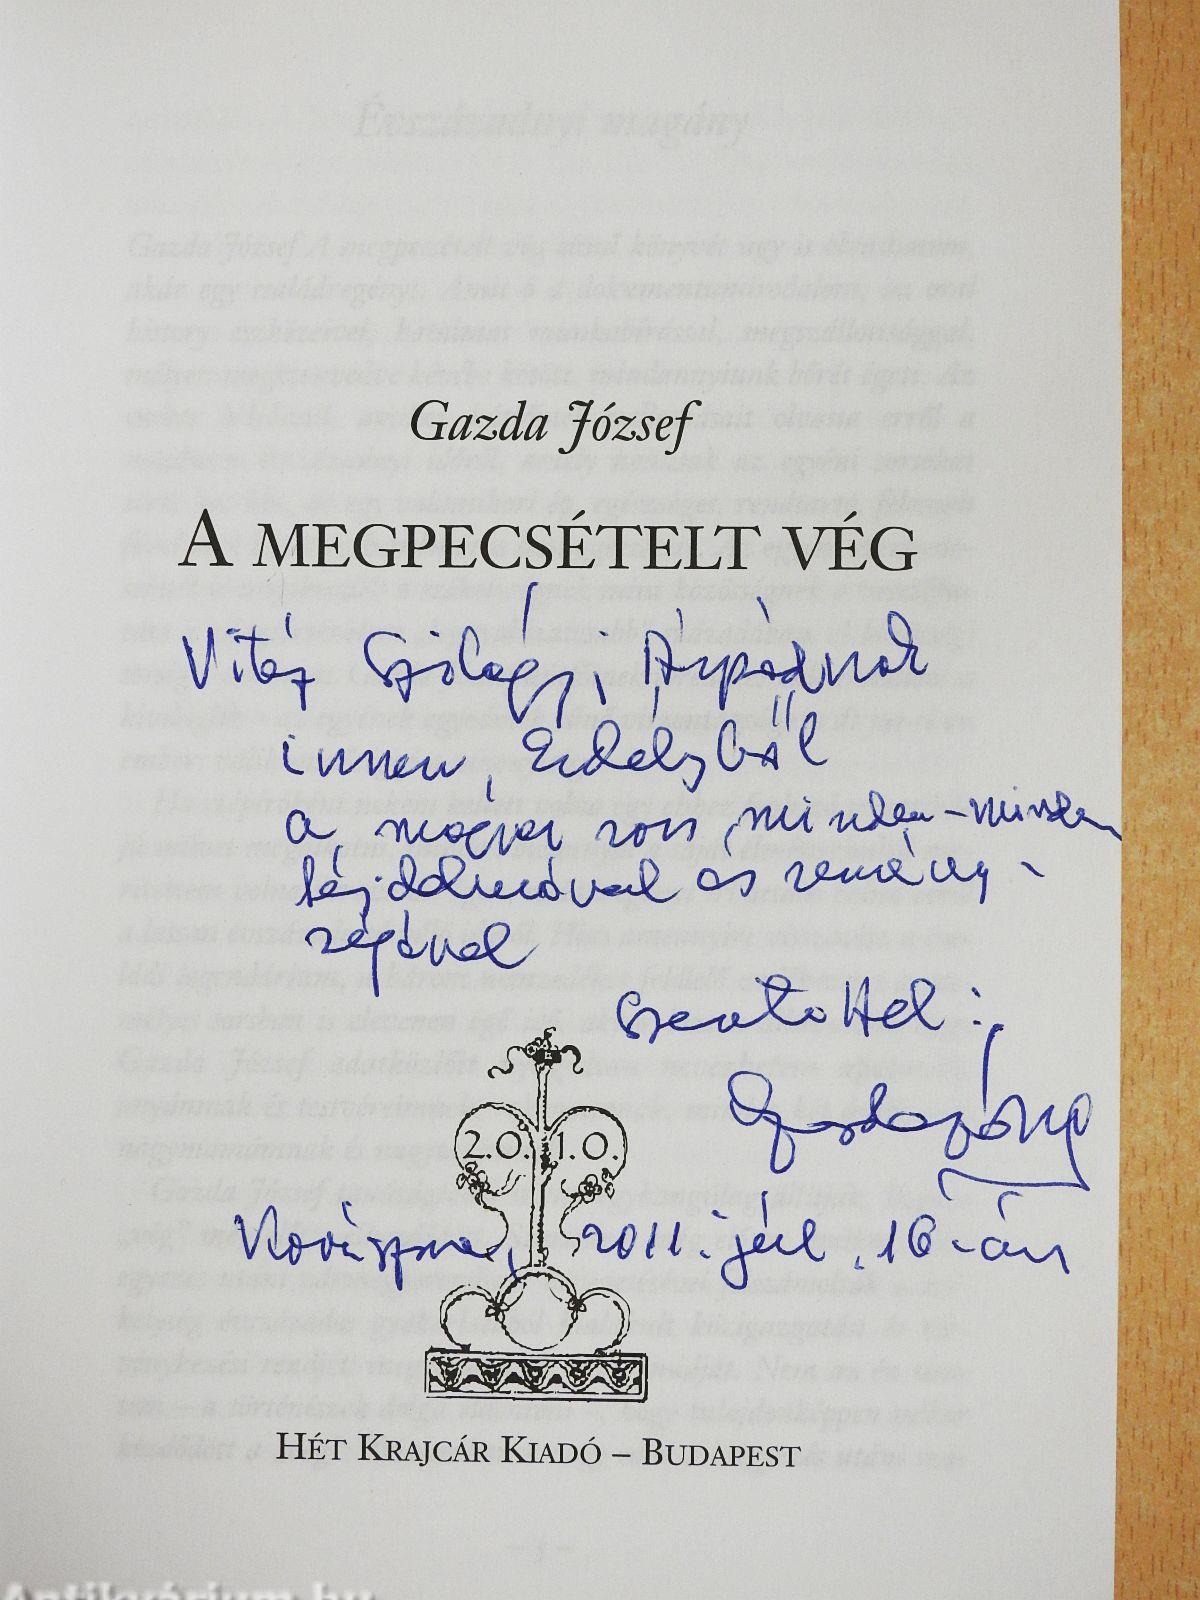 Gazda József
A MEGPECSÉTELT VÉG
Vitéz Szilágyi Árpádnak
innen, Erdélyből
a magyar sors minden-minden
fájdalmával és remény-
ségével
szeretettel:
Gazda József
2.0. 1.0.
Kovászna, 2011. júl. 16-án
HÉT KRAJCÁR KIADÓ – BUDAPEST